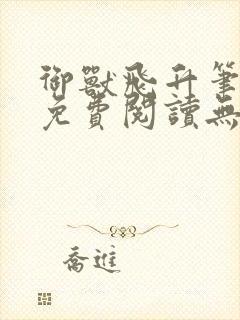 御獸飛升筆
免費閱讀無
喬進